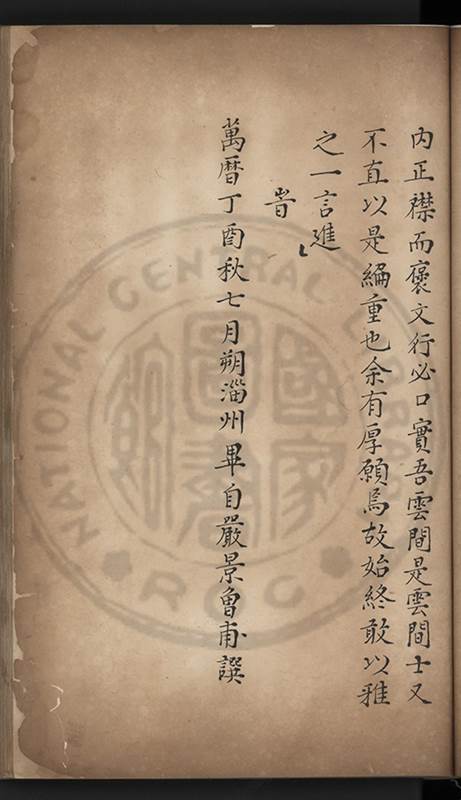 內正襟而褒文行必口實吾雲間是雲間士又
不直以是編重也余有厚願焉故始終敢以雅
之一言進
旹
萬曆丁酉秋七月朔淄州畢自嚴景曾甫譔
NATIONAL CENTRAL LIBRARY
R.O.C